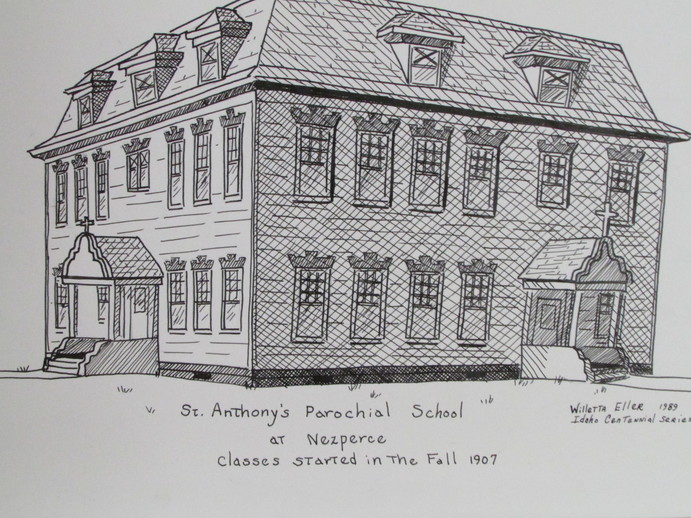 St. Anthony's Parochial School
at Nezperce
Classes started in the Fall 1907
Willetta Eller 1989
Idaho Centennial Series